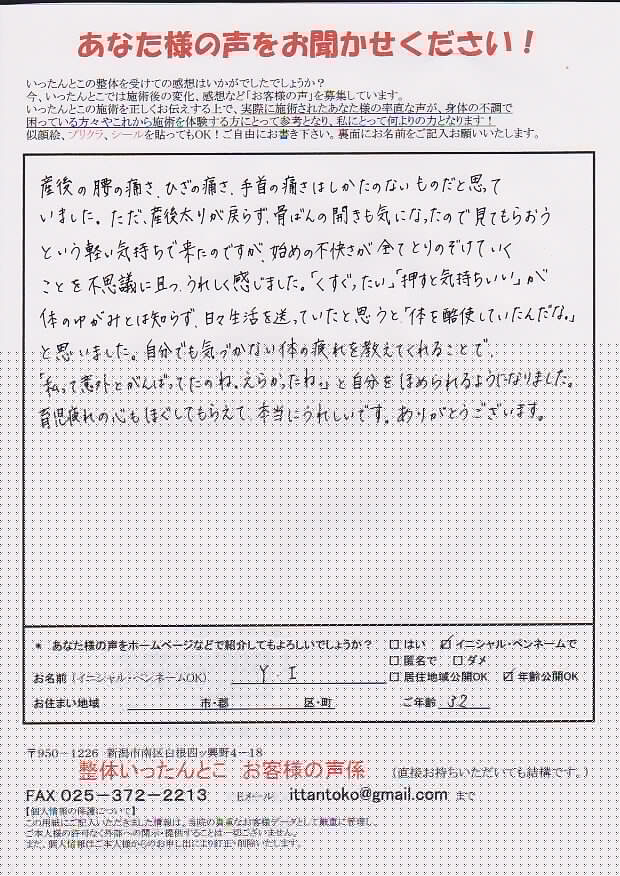 あなた様の声をお聞かせください！
いったんとこの整体を受けての感想はいかがでしたでしょうか？
今、いったんとこでは施術後の変化、感想など「お客様の声」を募集しています。
いったんとこの施術を正しくお伝えする上で、実際に施術されたあなた様の率直な声が、身体の不調で
困っている方々やこれから施術を体験する方にとって参考となり、私にとって何よりの力となります！
似顔絵、プリクラ、シールを貼ってもOK！ご自由にお書き下さい。裏面にお名前をご記入お願いいたします。
産後の腰の痛さ、ひざの痛さ、手首の痛さはしかたのないものだと思って
いました。ただ、産後太りが戻らず、骨ばんの開きも気になったので見てもらおう
という軽い気持ちで来たのですが、始めの不快さが全てとりのぞけていく
ことを不思議に且つ、うれしく感じました。「くすぐったい」「押すと気持ちいい」が
体のゆがみとは知らず、日々生活を送っていたと思うと、「体を酷使していたんだな。」
と思いました。自分でも気づかない体の疲れを教えてくれることで、
「私って意外とがんばってたのね。えらかったね。」と自分をほめられるようになりました。
育児疲れの心もほぐしてもらえて、本当にうれしいです。ありがとうございます。
* あなた様の声をホームページなどで紹介してもよろしいでしょうか？ □はい ☑イニシャル・ペンネームで
□匿名で □ダメ
お名前（イニシャル・ペンネームOK） Y・I □居住地域公開OK ☑年齢公開OK
お住まい地域 市・郡 区・町 ご年齢 32
〒950－1226 新潟市南区白根四ッ興野4－18
整体いったんとこ お客様の声係 （直接お持ちいただいても結構です。）
FAX 025－372－2213 Eメール ittantoko@gmail.com まで
【個人情報の保護について】
この用紙にご記入いただきました情報は、当院の貴重なお客様データとして厳重に管理し、
ご本人様の許可なく外部への開示・提供することは一切ございません。
また、個人情報はご本人様からのお申し出により訂正・削除いたします。